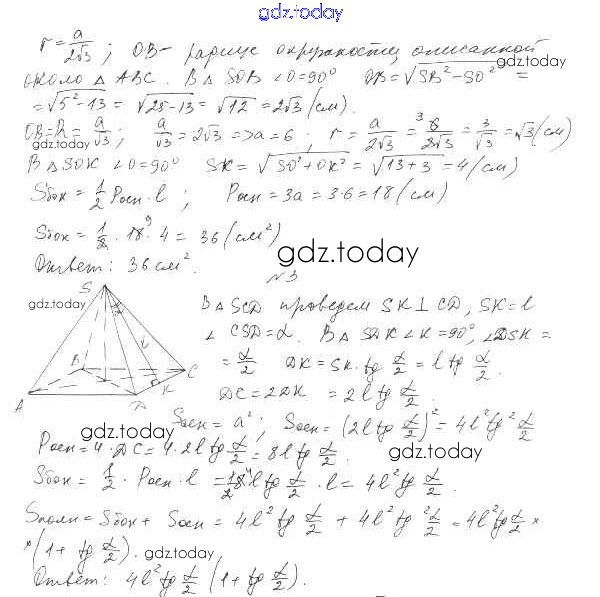 gdz.today
r = a/2√3 ; OB - радиус окружности, описанной
gdz.today
около △ ABC. В △ SOB ∠O=90° OB = √SB² - SO² =
= √5² - 13 = √25-13 = √12 = 2√3 (см).
OB=R= a/√3 ; a/√3 = 2√3 => a = 6 ; r = a/2√3 = 6/2√3 = 3/√3 = √3 (см)
gdz.today
В △ SOK ∠O=90° SK = √SO²+OK² = √13+3 = 4 (см)
Sбок = 1/2 Pосн · l ; Pосн = 3a = 3·6 = 18 (см)
Sбок = 1/2 · 18 · 4 = 36 (см²)
gdz.today
Ответ: 36 см².
№3
S
gdz.today
B
C
l
K
A
D
В △ SCD проведем SK ⊥ CD, SK = l
∠ CSD = α. В △ SDK ∠K = 90°, ∠DSK =
= α/2 DK = SK · tg α/2 = l tg α/2.
DC = 2DK = 2l tg α/2.
Sосн = a² ; Sосн = (2l tg α/2)² = 4l² tg² α/2
gdz.today
Pосн = 4 · DC = 4 · 2l tg α/2 = 8l tg α/2.
gdz.today
Sбок = 1/2 · Pосн · l = 1/2 · 8l tg α/2 · l = 4l² tg α/2.
Sполн = Sбок + Sосн = 4l² tg α/2 + 4l² tg² α/2 = 4l² tg α/2 ×
× (1 + tg α/2).
gdz.today
Ответ: 4l² tg α/2 (1 + tg α/2).